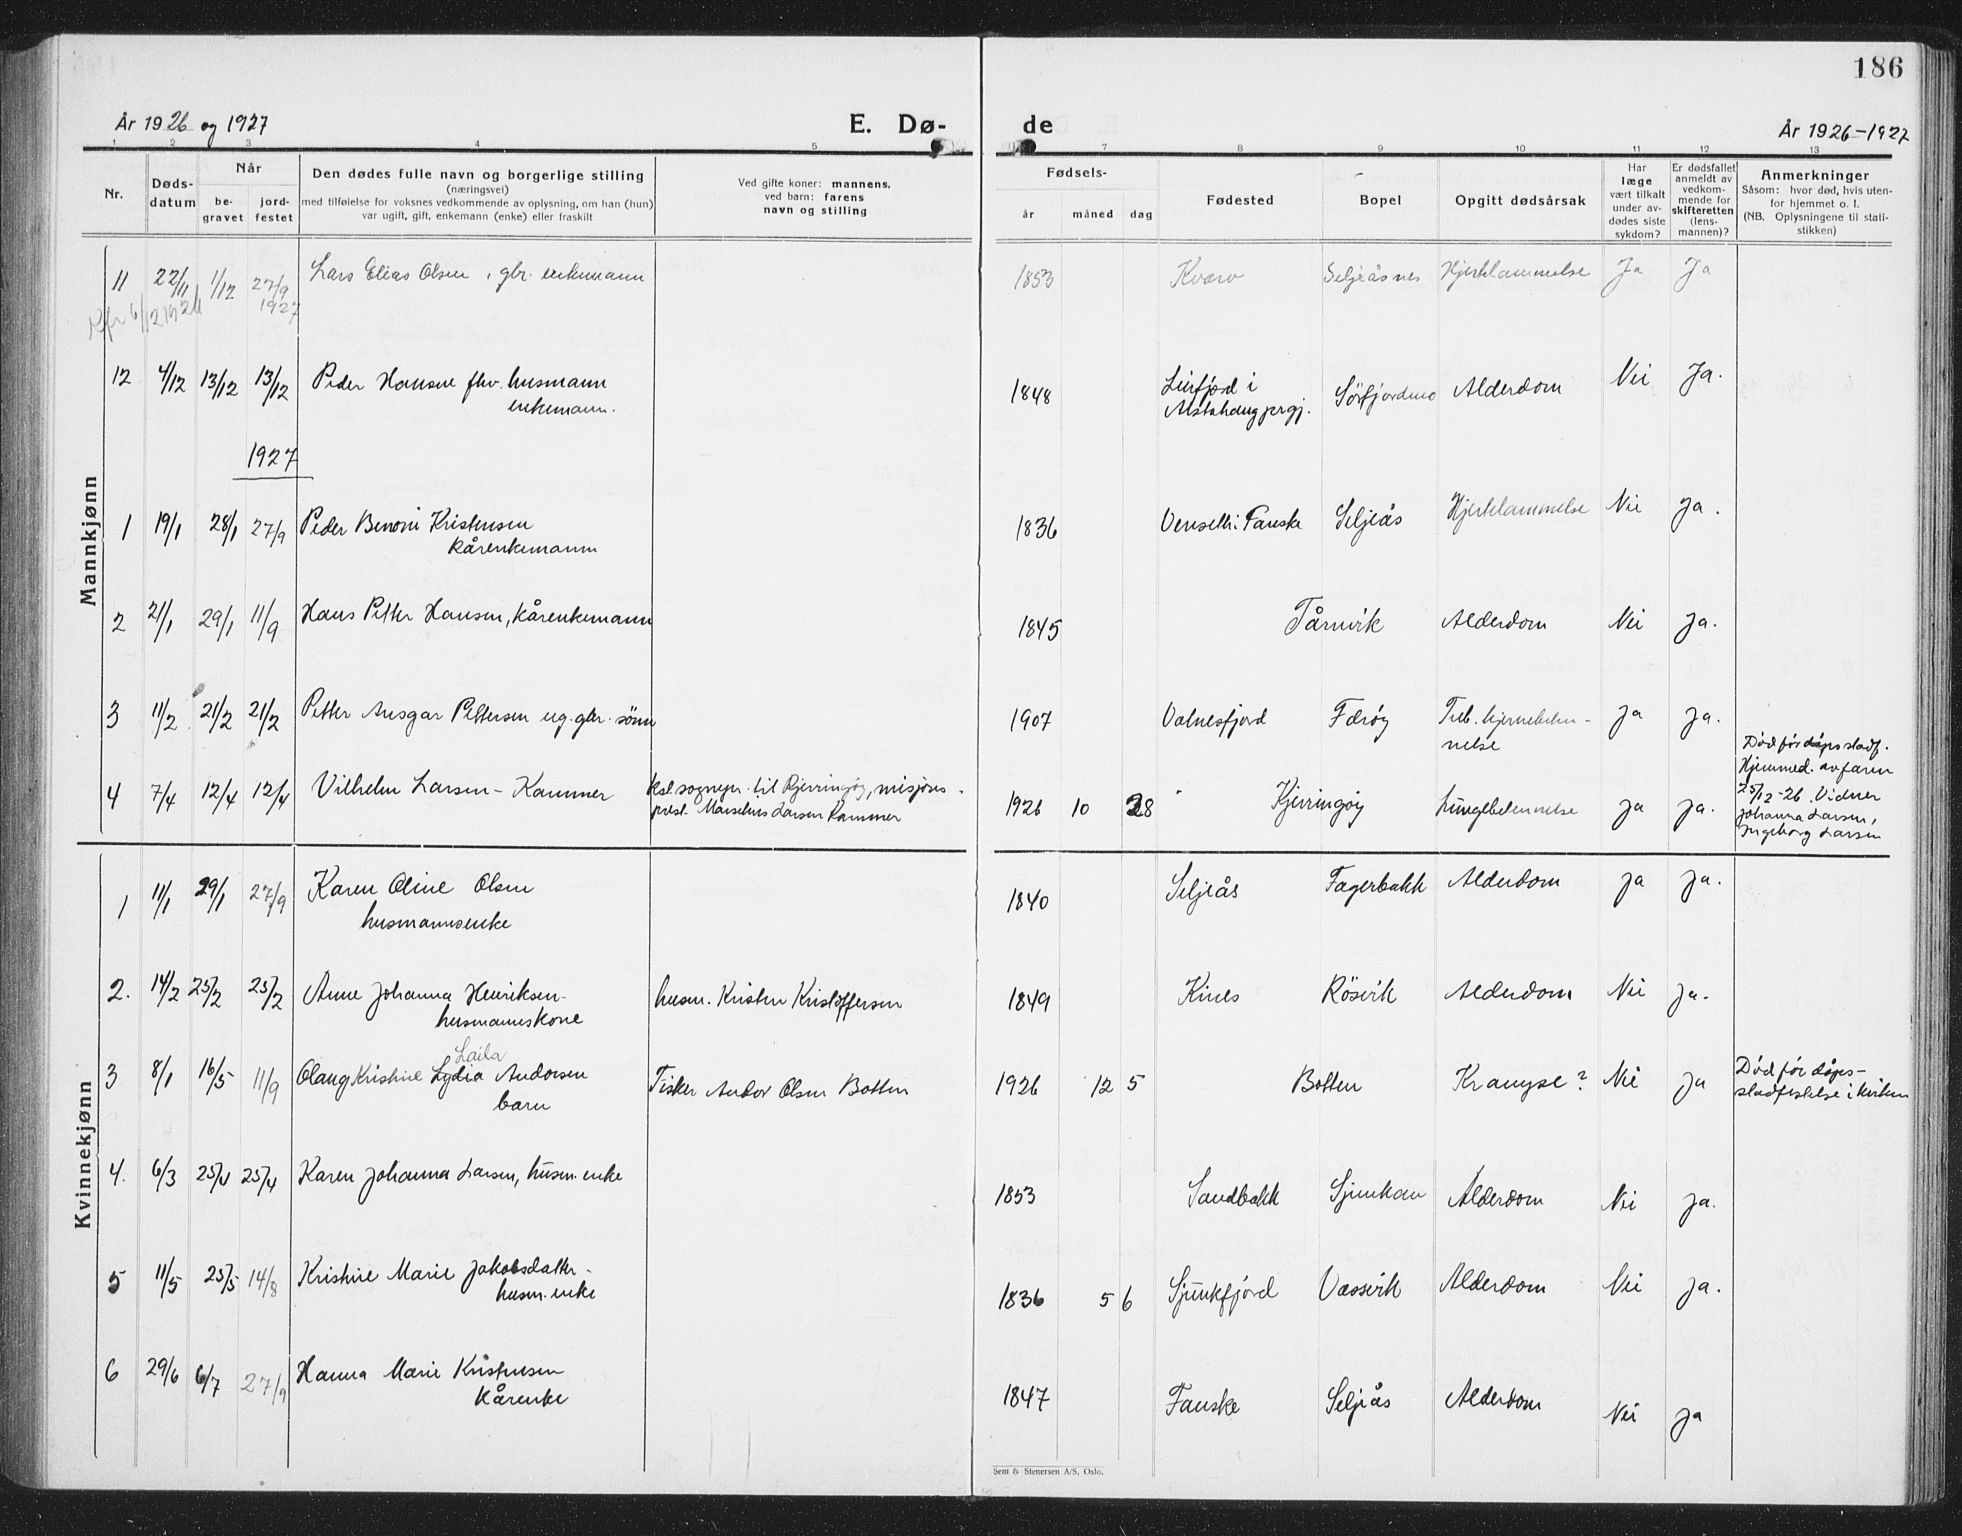 186
År 1926 og 1927
E. Dø-
de
År 1926-1927
1 2 3 4 5
7 8 9 10 11 12 13
Nr.
Døds-
datum
Når
be-
gravet
jord-
festet
Den dødes fulle navn og borgerlige stilling
(næringsvei)
med tilføielse for voksnes vedkommende av oplysning, om han (hun)
var ugift, gift, enkemann (enke) eller fraskilt
Ved gifte koner: mannens,
ved barn: farens
navn og stilling
Fødsels-
år måned dag
Fødested
Bopel
Opgitt dødsårsak
Har
læge
vært tilkalt
under av-
dødes siste
sykdom?
Er dødsfallet
anmeldt av
vedkom-
mende for
skifteretten
(lens-
mannen)?
Anmerkninger
Såsom: hvor død, hvis uten-
for hjemmet o. l.
(NB. Oplysningene til stati-
stikken)
Mannkjønn
11 22/11 1/12 27/9 Lars Elias Olsen, gbr. enkemann 1853 Kvarv Seljeåsnes Hjerteslammelse Ja Ja
6/12 1926 1927
12 4/12 13/12 13/12 Peder Hansen fhv. husmann 1848 Leirfjord i Sörfjordmo Alderdom Nei Ja.
enkemann. Alstahaug prgj.
1927
1 19/1 28/1 27/9 Peder Benoni Kristensen 1836 Venset i Fauske Seljeås Nei Ja.
kårenkemann
2 21/1 29/1 11/9 Hans Petter Hansen, kårenkemann 1845 Tårnvik Alderdom Nei Ja.
3 11/2 21/2 21/2 Petter Ansgar Pettersen ug. gbr. sönn 1907 Valnesfjord Færøy Tub. hjernebeten- Ja Ja.
nelse
4 7/4 12/4 12/4 Vilhelm Larsen-Kammer til Kjerringøy, misjons-
prest Marselius Larsen Kammer 1926 10 28 Kjerringøy lungebetennelse Ja Ja.
Död för dåps stadf.
Hjemmed. av faren
25/12-26. Vidner
Johanna Larsen,
Ingeborg Larsen
Kvinnekjønn
1 11/1 29/1 27/9 Karen Oline Olsen 1840 Seljeås Fagerbakk Alderdom Ja Ja.
husmannsenke
2. 14/2 25/2 25/2 Anne Johanna Henriksen- husm. Kristen Kristoffersen 1849 Kines Rösvik Alderdom Nei Ja.
husmannskone
Laila
3 8/1 16/5 11/9 Olaug Kristine Lydia Andorsen Fisker Andor Olsen Botten 1926 12 5 Botten Krampe? Nei Ja Död för dåps-
barn stadfestelse i kirken
4. 6/3 25/4 25/4 Karen Johanna Larsen, husm. enke 1853 Sandbakk Sjunkan Alderdom Nei Ja.
5 11/5 25/5 14/8 Kristine Marie Jakobsdatter- 1836 5 6 Sjunkfjord Vassvik Alderdom Nei Ja.
husm. enke
6 29/6 6/7 27/9 Hanna Marie Kristensen 1847 Fauske Seljeås Alderdom Nei Ja
kårenke
Sem & Stenersen A/S, Oslo.